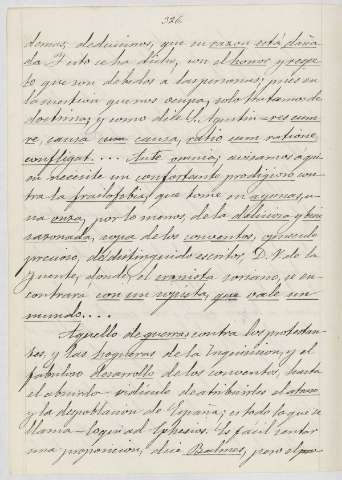 326
demos, deducimos, que su razon está daña
da. Y esto se ha dicho, con el honor y respe
to que son debidos a las personas; pues en
la cuestión que nos ocupa, solo tratamos de
doctrinas; y como dice S. Agustin = res cum
re, causa cum causa, ratio cum ratione,
confligat.... Ante omnia; avisamos á qui
en necesite un confortante prodigioso con
tra la frailofobia, que tome en ayunas, u
na onza, por lo menos, de la deliciosa y bien
sazonada, sopa de los conventos, opúsculo
precioso, del distinguido escritor, D. V. de la
Fuente, donde, el cronista soriano, se en
contrará con un sopista, que vale un
mundo....
Aquello de guerras contra los protestan
tes, y las hogueras de la Inquisicion, y el
fabuloso desarrollo de los conventos, hasta
el absurdo ridículo de atribuirles el atraso
y la despoblacion de España; es todo lo que se
llama = loqui ad Ephesios. Es fácil sentar
una proposicion, dice Balmes, pero el